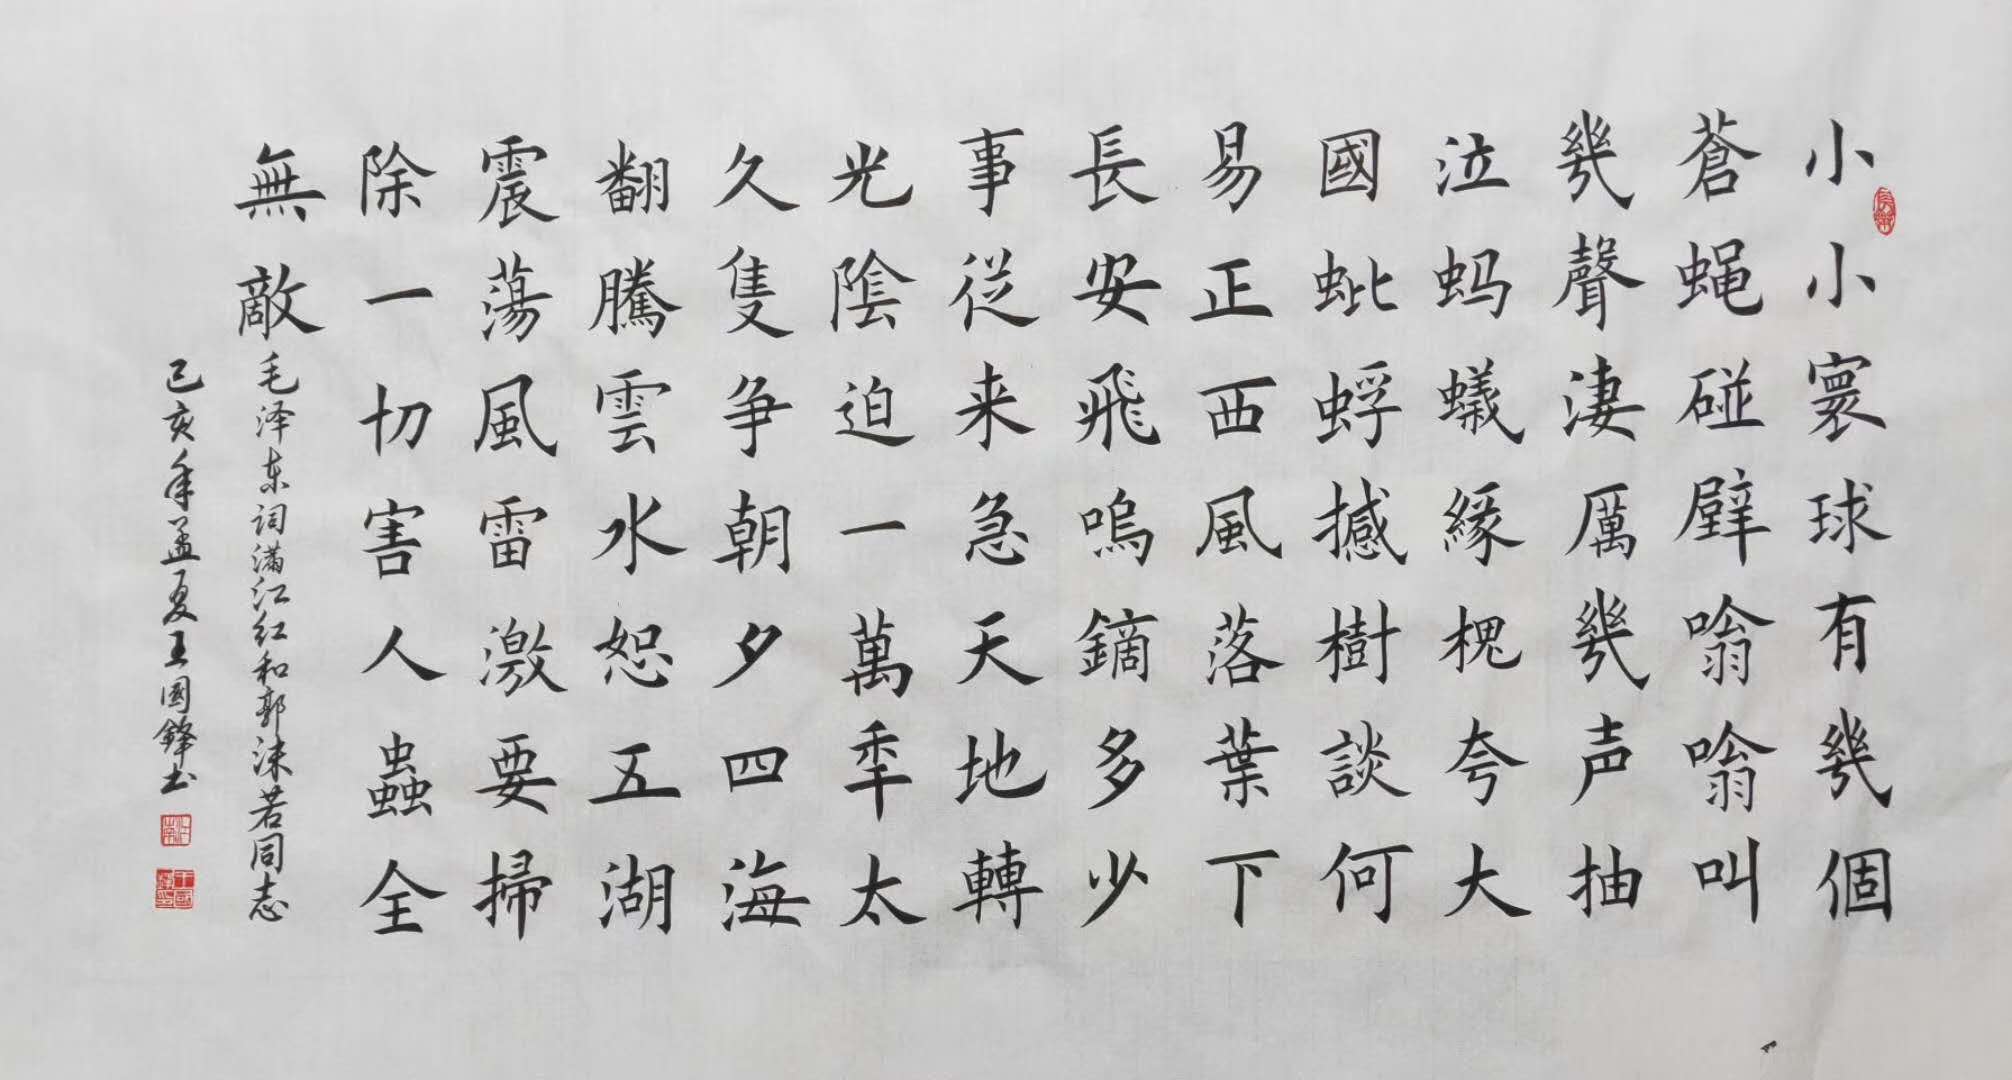 小小寰球有幾個
蒼蝇碰壁嗡嗡叫
幾聲淒厲幾声抽
泣蚂蟻緣槐夸大
國蚍蜉撼樹談何
易正西風落葉下
長安飛嗚鏑多少
事從来急天地轉
光陰迫一萬秊太
久隻争朝夕四海
翻騰雲水恕五湖
震蕩風雷激要掃
除一切害人蟲全
無敵
毛泽东词满江红和郭沫若同志
己亥年孟夏王國鋒书